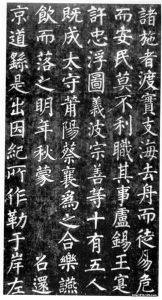 諸施者渡實支海去舟而徒易危
而安民莫不利職其事盧錫王寔
許忠浮圖義波宗善等十有五人
既成太守莆陽蔡襄為之合樂讌
飲而落之明年秋蒙　召還
京道繇是出因紀所作勒于岸左